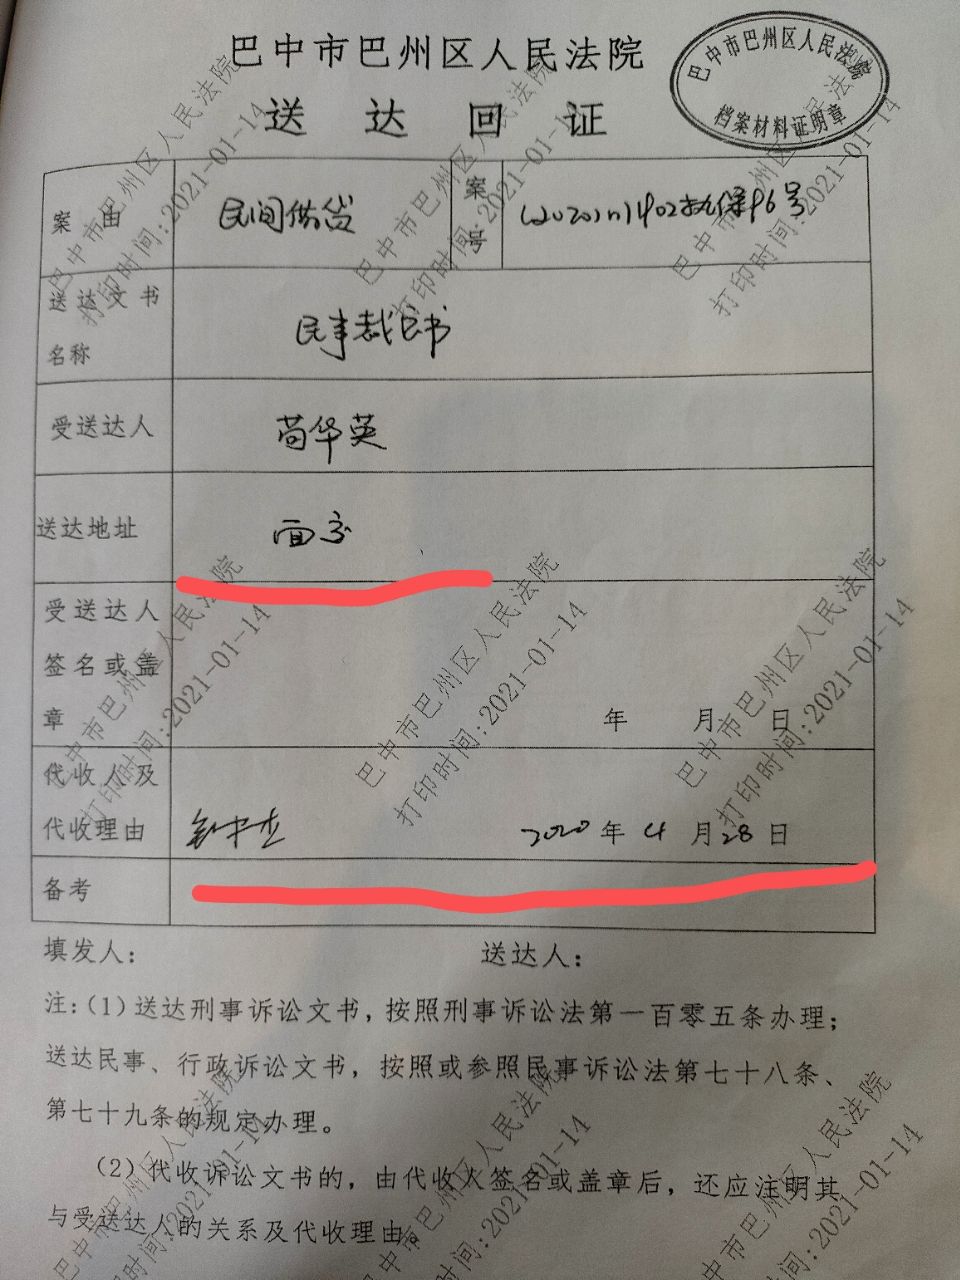 巴中市巴州区人民法院
巴中市巴州区人民法院
档案材料证明章
送 达 回 证
案 由 民间借贷 案号 (2020)川1902执保96号
送达文书名称 民事裁定书
受送达人 苟华英
送达地址 面交
受送达人
签名或盖
章 年 月 日
代收人及
代收理由 2020年4月28日
备考
填发人: 送达人:
注:(1)送达刑事诉讼文书,按照刑事诉讼法第一百零五条办理;
送达民事、行政诉讼文书,按照或参照民事诉讼法第七十八条、
第七十九条的规定办理。
(2)代收诉讼文书的,由代收人签名或盖章后,还应注明其
与受送达人的关系及代收理由。
巴中市巴州区人民法院
打印时间:2021-01-14
巴中市巴州区人民法院
打印时间:2021-01-14
巴中市巴州区人民法院
打印时间:2021-01-14
巴中市巴州区人民法院
打印时间:2021-01-14
巴中市巴州区人民法院
打印时间:2021-01-14
巴中市巴州区人民法院
打印时间:2021-01-14
巴中市巴州区人民法院
打印时间:2021-01-14
巴中市巴州区人民法院
打印时间:2021-01-14
巴中市巴州区人民法院
打印时间:2021-01-14